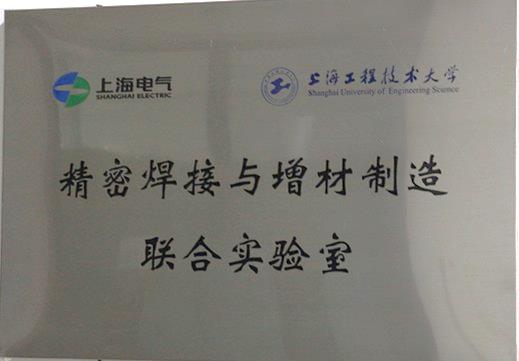 上海电气
SHANGHAI ELECTRIC
上海工程技术大学
Shanghai University of Engineering Science
精密焊接与增材制造
联合实验室